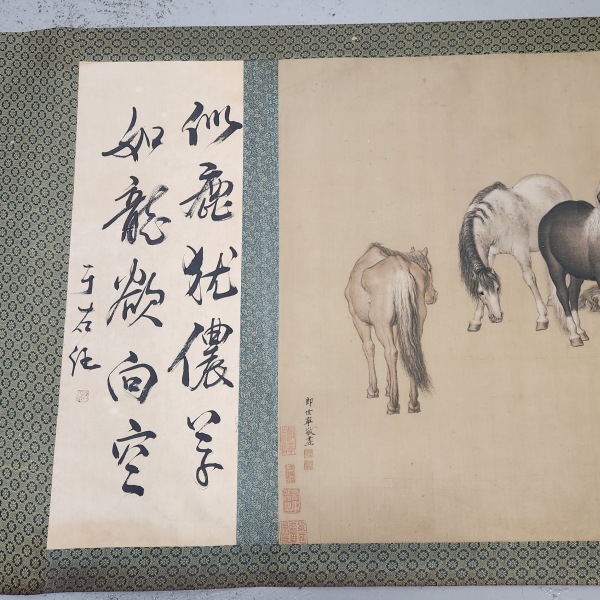 似鹿犹儂草
如龍欲向空
于右任
郎世寧敬畫